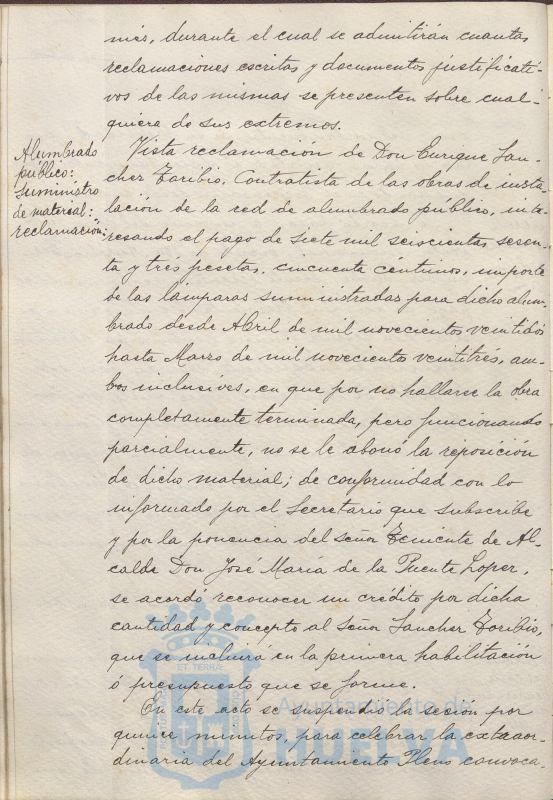 més, durante el cual se admitirán cuantas
reclamaciones escritas y documentos justificati-
vos de las mismas se presenten sobre cual-
quiera de sus extremos.
Alumbrado
público:
Suministro
de material:
reclamación:
Vista reclamación de Don Enrique Sán-
chez Toribio, Contratista de las obras de insta-
lación de la red de alumbrado público, inte-
resando el pago de siete mil seiscientas sesen-
ta y tres pesetas, cincuenta céntimos, importe
de las lámparas suministradas para dicho alum-
brado desde Abril de mil novecientos veintidos
hasta Marzo de mil novecientos veintitrés, am-
bos inclusives, en que por no hallarse la obra
completamente terminada, pero funcionando
parcialmente, no se le abonó la reposición
de dicho material; de conformidad con lo
informado por el Secretario que subscribe
y por la ponencia del señor Teniente de Al-
calde Don José María de la Puente Lopez,
se acordó reconocer un crédito por dicha
cantidad y concepto al Señor Sanchez Toribio,
que se incluirá en la primera habilitación
ó presupuesto que se forme.
En este acto se suspendió la sesión por
quince minutos, para celebrar la extraor-
dinaria del Ayuntamiento Pleno convoca-
Ayuntamiento de
HUELVA